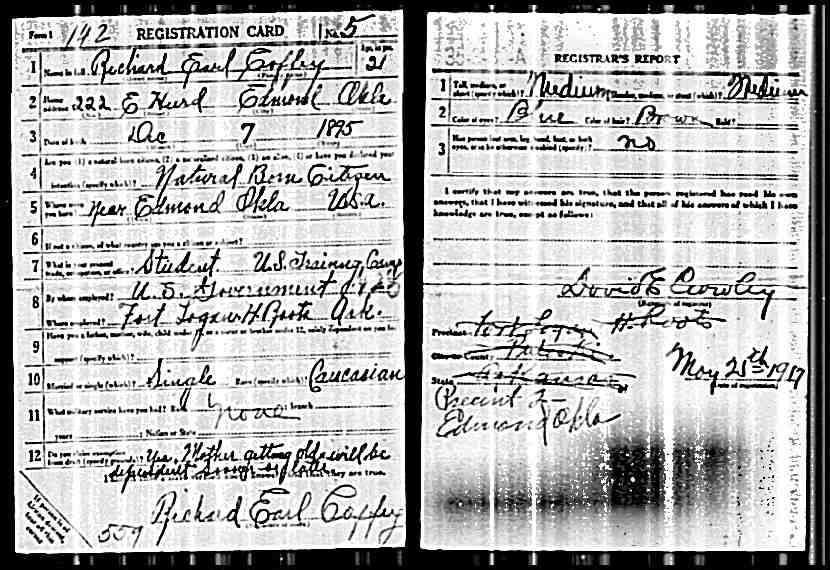 Form 1 142 REGISTRATION CARD No. 5
1 Name in full Richard Earl Coffey Age, in yrs. 21
2 Home address 222 E Hurd Edmond Okla
3 Date of birth Dec 7 1895
4 Are you (1) a natural born citizen, (2) a naturalized citizen, (3) an alien, (4) or have you declared your
intention (specify which)? Natural Born Citizen
5 Where were you born? Near Edmond Okla U.S.A.
6 If not a citizen, of what country are you a citizen or subject?
7 What is your present trade, occupation, or office? Student U.S. Training Camp
8 By whom employed? U.S. Government
Where employed? Fort Logan H Roots Ark.
9 Have you a father, mother, wife, child under 12, or a sister or brother under 12, solely dependent on you for
support (specify which)?
10 Married or single (which)? Single Race (specify which)? Caucasian
11 What military service have you had? Rank None branch
years ; Nation or State
12 Do you claim exemption from draft (specify grounds)? Yes, Mother getting old & will be
dependent sooner or later
they are true.
If person is of African descent, tear off this corner
559 Richard Earl Coffey
REGISTRAR'S REPORT
1 Tall, medium, or short (specify which)? Medium Slender, medium, or stout (which)? Medium
2 Color of eyes? Blue Color of hair? Brown Bald?
3 Has person lost arm, leg, hand, foot, or both eyes, or is he otherwise disabled (specify)? No
I certify that my answers are true, that the person registered has read his own
answers, that I have witnessed his signature, and that all of his answers of which I have
knowledge are true, except as follows:
David E Crowley
(Signature of registrar)
Precinct Fort Logan H. Roots
City or County Pulaski
State Arkansas
May 25th 1917
(Date of registration)
Precinct 2
Edmond Okla